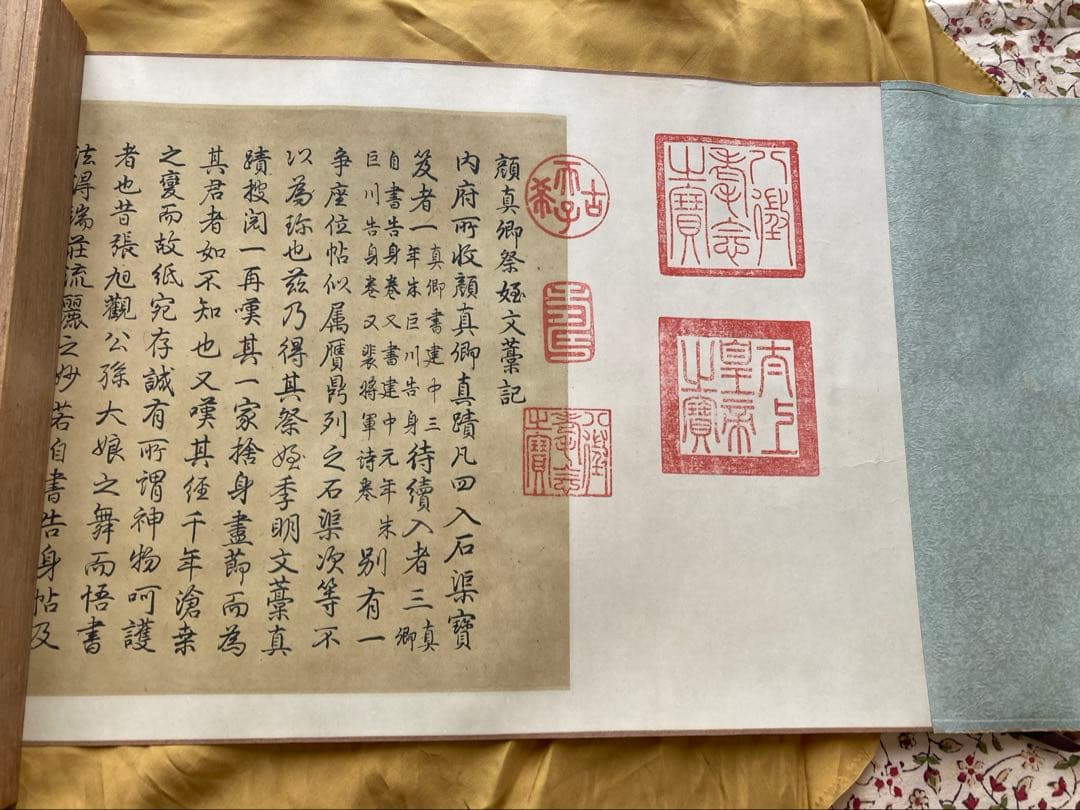 八徵耄念之寶
太上皇帝之寶
古希天子
壽
八徵耄念之寶
顏真卿祭姪文藁記
內府所收顏真卿真蹟凡四入石渠寶
笈者一真卿書建中三年朱巨川告身待續入者三真卿
自書告身卷又書建中元年朱巨川告身卷又裴將軍詩卷別有一
爭座位帖似属贋鼎列之石渠次等不
以為珍也茲乃得其祭姪季明文藁真
蹟搜閱一再嘆其一家捨身盡節而為
其君者如不知也又嘆其經千年滄桒
之變而故紙宛存誠有所謂神物呵護
者也昔張旭觀公孫大娘之舞而悟書
法得端莊流麗之妙若自書告身帖及